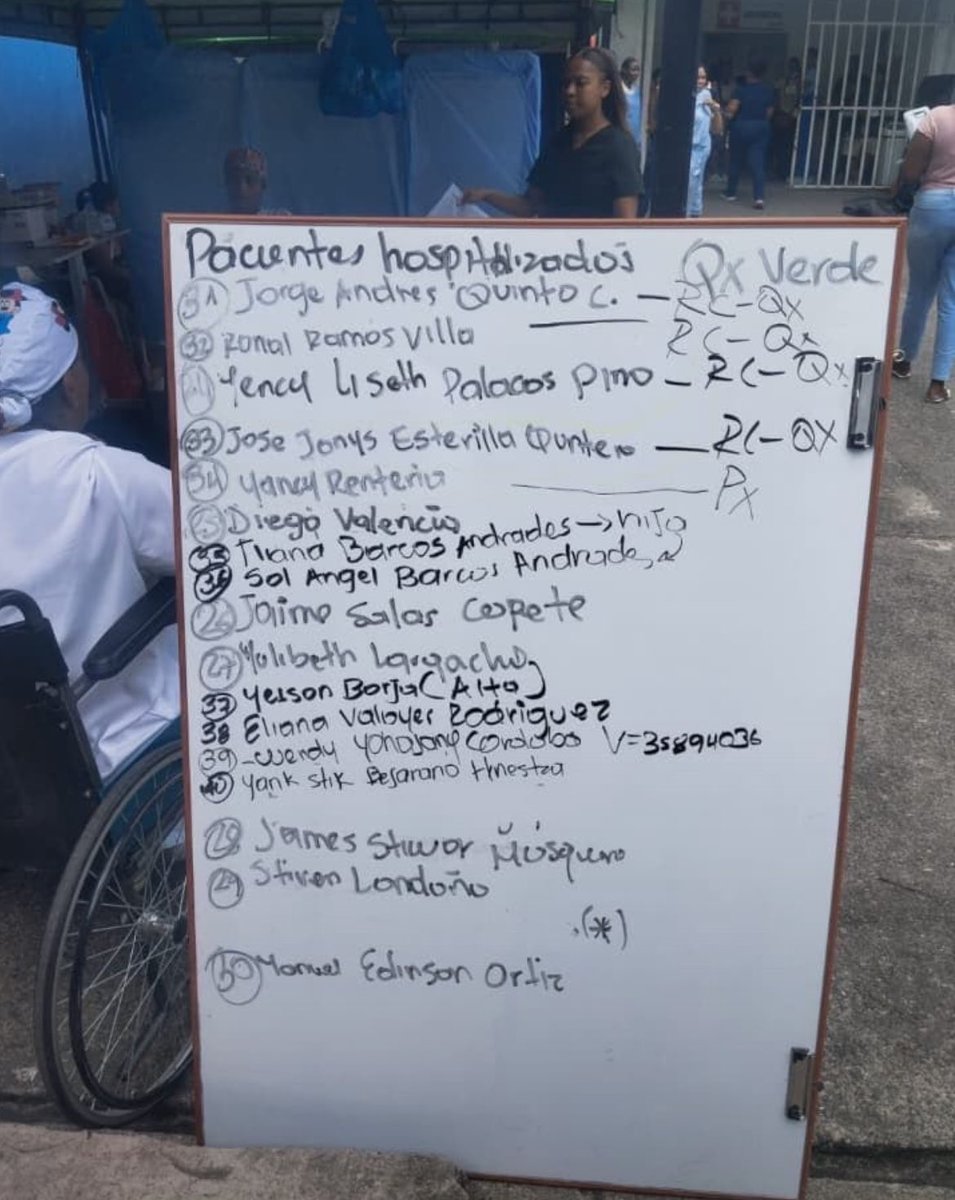 Pacientes hospitalizados Qx Verde
31 Jorge Andres Quinto C. — RC-Qx
32 Ronal Ramos Villa RC-Qx
Yency Liseth Palacos Pino - RC-Qx
33 Jose Jonys Esterilla Quntero — RC-QX
34 Yancy Renteria — Px
Diego Valencia
Barcos Andrades → hijo
Sol Angel Barcos Andrade
26 Jaime Salas
27
37 Yeison Borja (Alta)
38 Eliana Valoyer Rodriguez
39 - Wendy Cordoba V=35894036
40 Yank stik Bejarano Hinestza
28 James Stiwar
29 Stiven Londoño
(*)
30 Manuel Edinson Ortiz